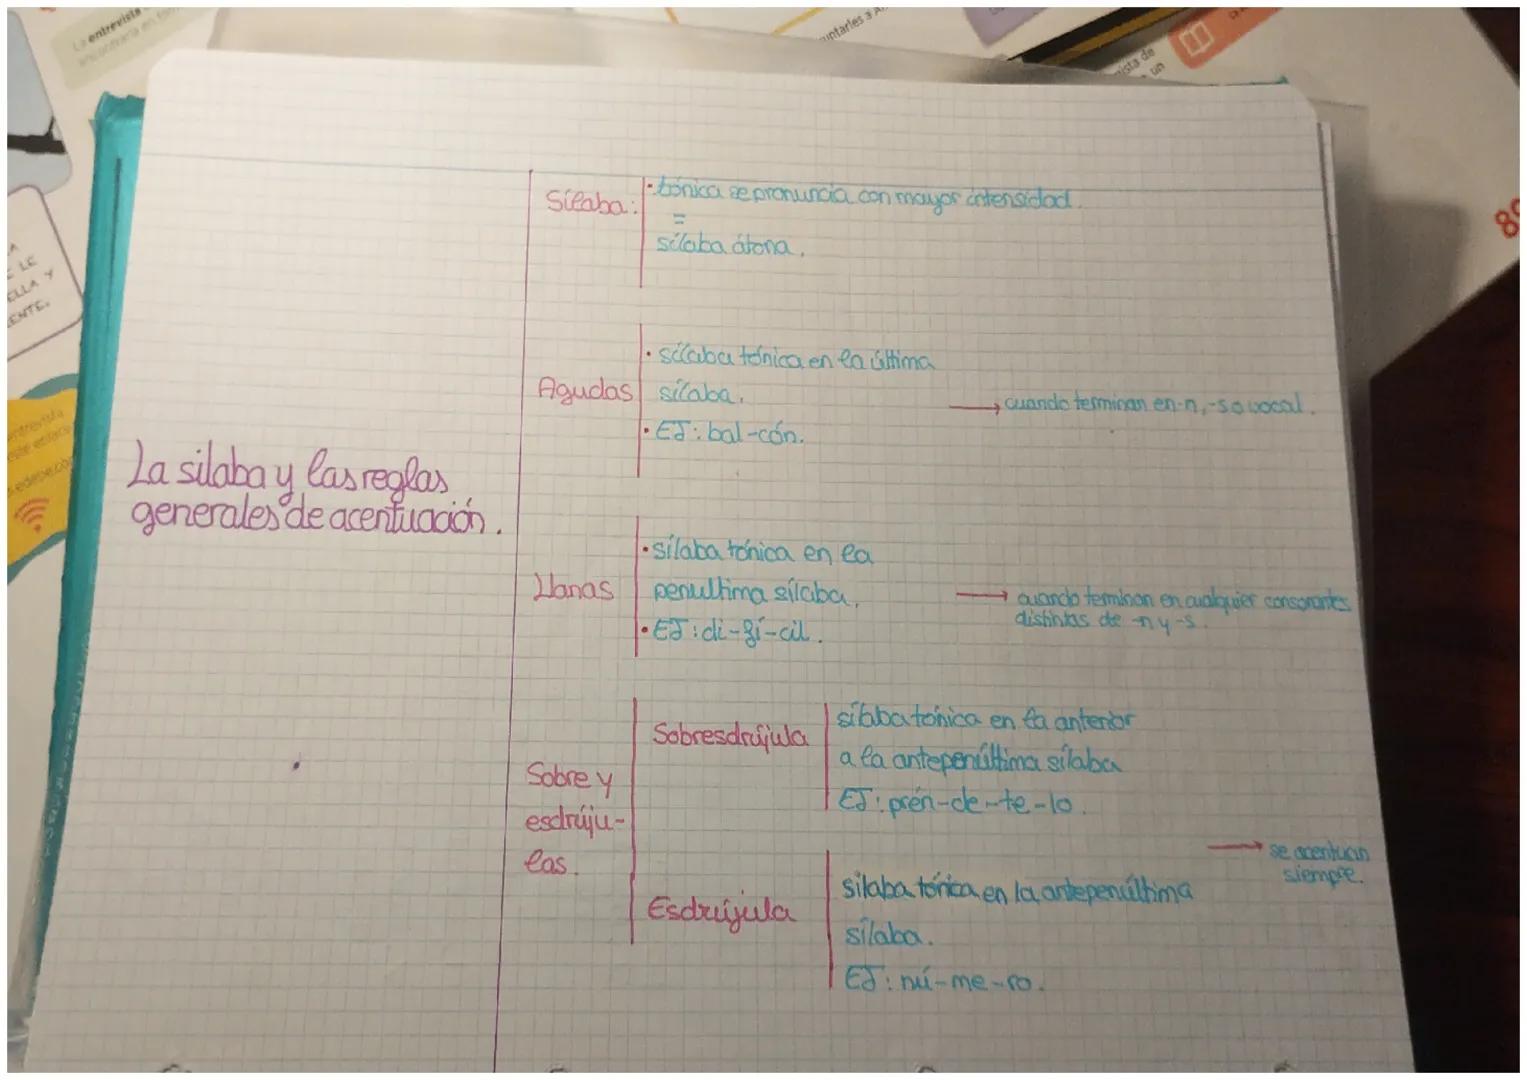 La entrevista
untarles a
ista de
un
89
A
E LE
ELLA Y
ENTE.
entrevista
este enlace
edebe.co
La silaba y las reglas
generales de acentuación.
Sílaba:
• tónica se pronuncia con mayor intensidad.
=
sílaba átona.
Agudas
• sílaba tónica en la última
sílaba.
• EJ: bal-cón.
→ cuando terminan en -n, -s o vocal.
Llanas
• sílaba tónica en la
penultima sílaba.
• EJ: di-fí-cil.
→ cuando terminan en cualquier consonantes
distintas de -n y -s.
Sobre y
esdrúju-
las.
Sobresdrújula
sílaba tónica en la anterior
a la antepenúltima sílaba
EJ: prén-de-te-lo.
Esdrújula
silaba tónica en la antepenúltima
sílaba.
EJ: nú-me-ro.
→ se acentuan
siempre.